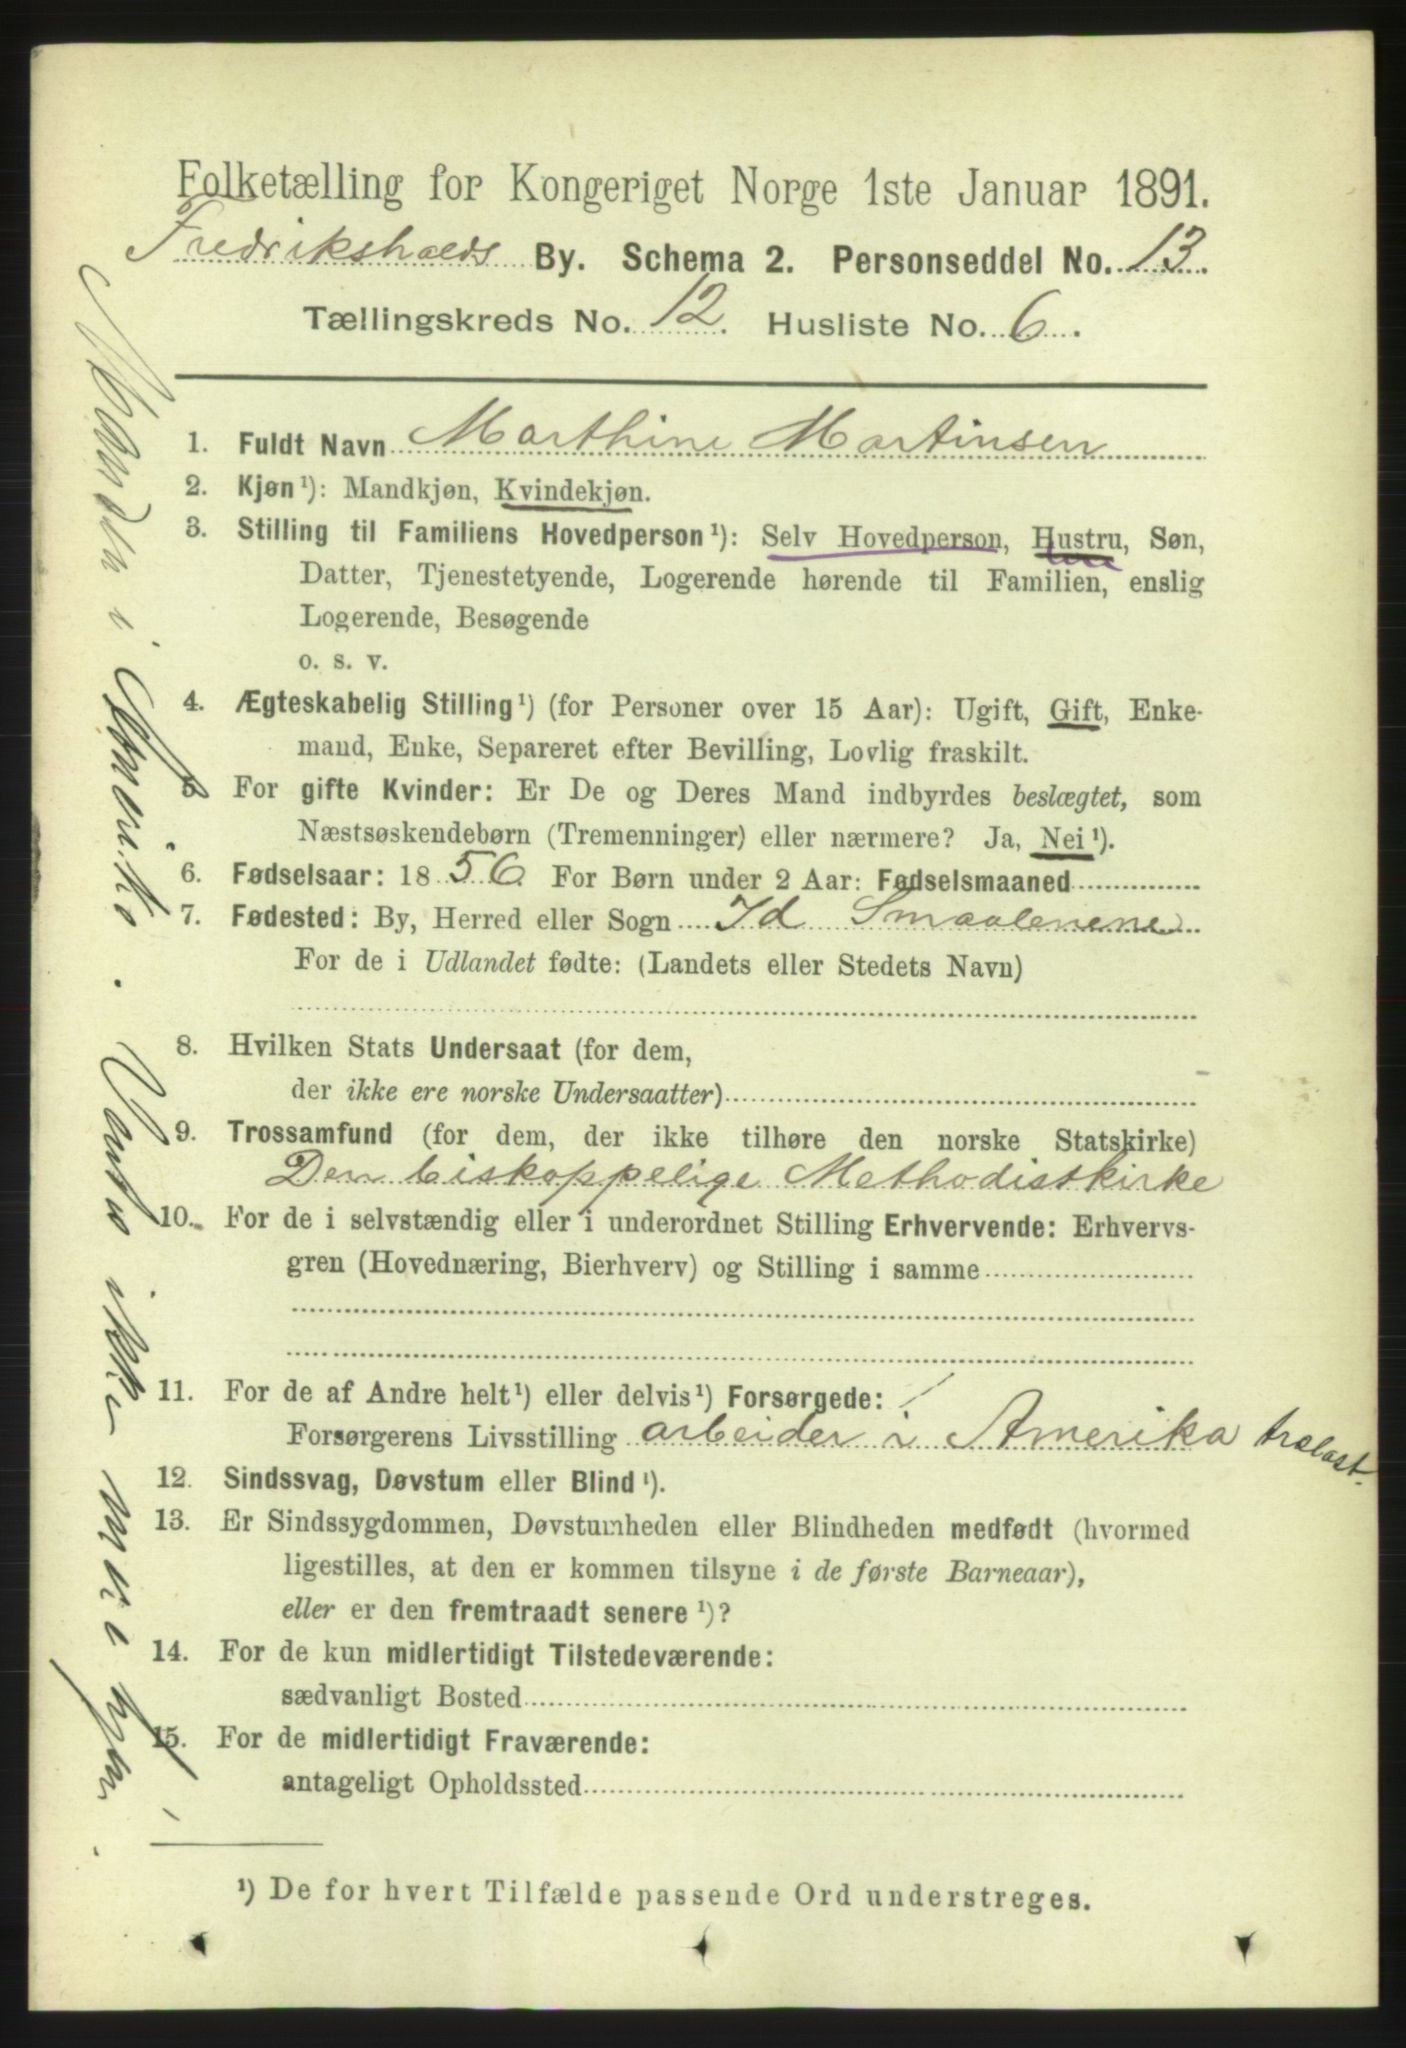 Folketælling for Kongeriget Norge 1ste Januar 1891.
Fredrikshalds By. Schema 2. Personseddel No. 13.
Tællingskreds No. 12. Husliste No. 6.
1. Fuldt Navn Marthine Martinsen
2. Kjøn¹): Mandkjøn, Kvindekjøn.
3. Stilling til Familiens Hovedperson¹): Selv Hovedperson, Hustru, Søn,
Datter, Tjenestetyende, Logerende hørende til Familien, enslig
Logerende, Besøgende
o. s. v.
4. Ægteskabelig Stilling¹) (for Personer over 15 Aar): Ugift, Gift, Enke-
mand, Enke, Separeret efter Bevilling, Lovlig fraskilt.
5 For gifte Kvinder: Er De og Deres Mand indbyrdes beslægtet, som
Næstsøskendebørn (Tremenninger) eller nærmere? Ja, Nei¹).
6. Fødselsaar: 1856. For Børn under 2 Aar: Fødselsmaaned
7. Fødested: By, Herred eller Sogn Id Smaalenene
For de i Udlandet fødte: (Landets eller Stedets Navn)
8. Hvilken Stats Undersaat (for dem,
der ikke ere norske Undersaatter)
9. Trossamfund (for dem, der ikke tilhøre den norske Statskirke)
Den biskoppelige Methodistkirke
10. For de i selvstændig eller i underordnet Stilling Erhvervende: Erhvervs-
gren (Hovednæring, Bierhverv) og Stilling i samme
11. For de af Andre helt¹) eller delvis¹) Forsørgede:
Forsørgerens Livsstilling arbeider i Amerika trælast.
12. Sindssvag, Døvstum eller Blind¹).
13. Er Sindssygdommen, Døvstumheden eller Blindheden medfødt (hvormed
ligestilles, at den er kommen tilsyne i de første Barneaar),
eller er den fremtraadt senere¹)?
14. For de kun midlertidigt Tilstedeværende:
sædvanligt Bosted
15. For de midlertidigt Fraværende:
antageligt Opholdssted
¹) De for hvert Tilfælde passende Ord understreges.
Manden i Amerika. Ventes ikke mere hjem.